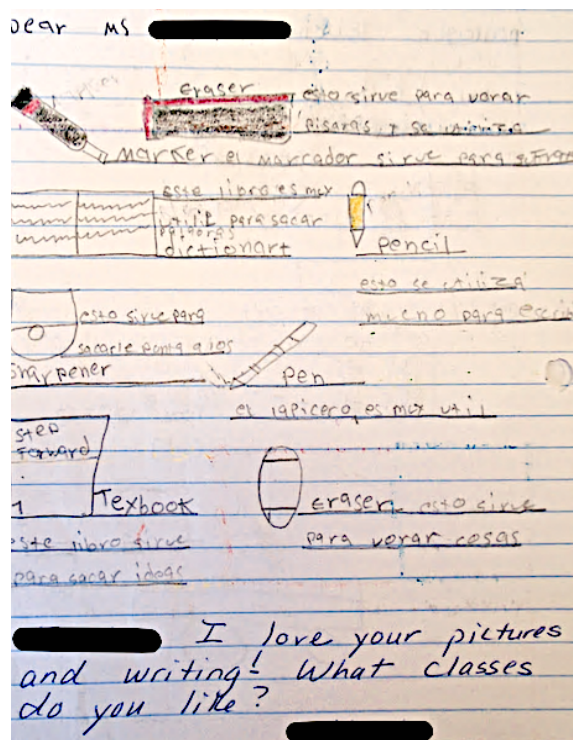 Dear MS
Eraser esto sirve para vorar
pisaras y se
Marker el marcador sirve para
este libro es mux
util para sacar
dictionart
Pencil
esto se utiliza
mucho para escrib
esto sirve para
sacarle punta a los
sharpener
Pen
el lapicero, es mux util
Step
Forward
1
Texbook
Eraser esto sirve
para vorar cosas
este libro sirve
para sacar ideas
I love your pictures
and writing! What classes
do you like?